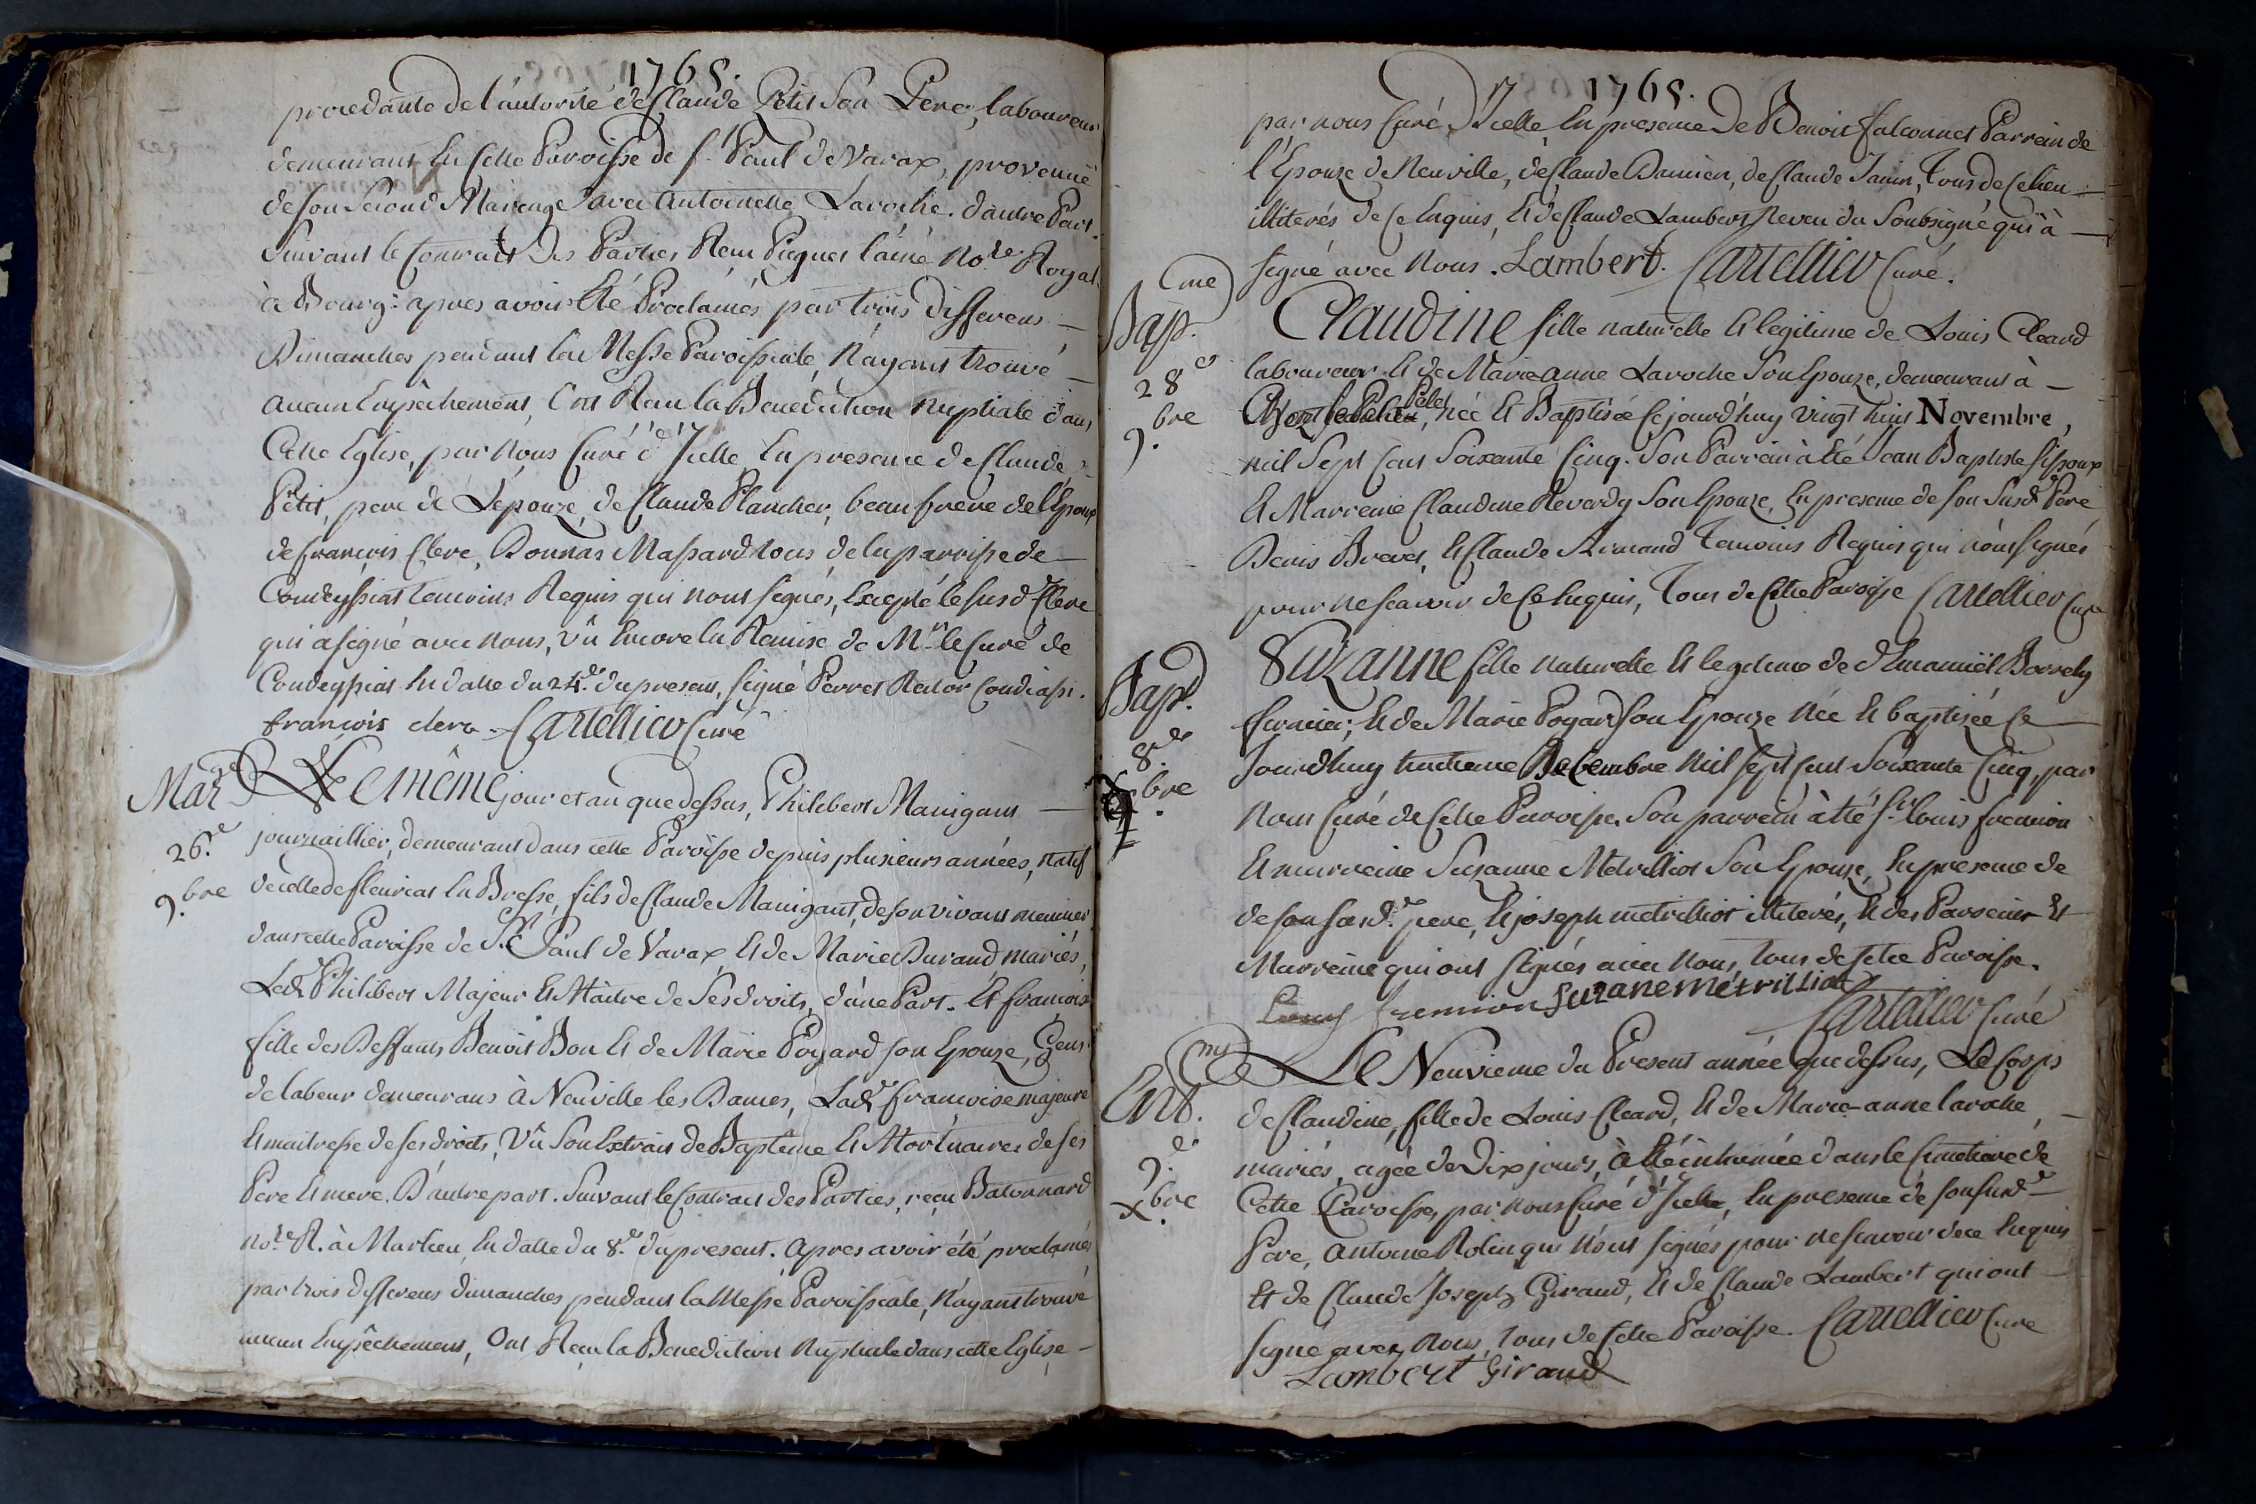 1765.
procedante de l'autorité de Claude Petit Son Pere, laboureur
demeurant En Cette Paroisse de St. Paul de Varax, provenuë
de son Second Mariage avec Antoinette Laroche. d'autre Part.
Suivant le Contract des Parties Reçu Piquet l'ainé No.re Royal
à Bourg: apres avoir Eté Proclamés par trois differens
Dimanches pendant la Messe Paroissiale, N'ayant trouvé
aucun Empêchement, Ont Reçu la Benediction nuptiale dans
Cette Eglise, par Nous Curé d'Icelle En presence de Claude
Petit, pere de L'épouze, de Claude Plancher, beau frere de l'Epoux
de françois Clerc, Bonnas Massard tous de la parroisse de
Condeyssiat temoins Requis qui n'ont signés, Excepté le susd. Clerc
qui a signé avec nous, Vû Encore la Remise de Mr. le Curé de
Condeyssiat En datte du 24.e du present, signé Perret Rector Condiassi.
françois clerc Cartellier Curé
Mar.
26.e
9.bre
Le même jour et an que dessus, Philibert Manigant
journaillier, demeurant dans cette Paroisse depuis plusieurs années, natif
de celle de fleuriat En Bresse, fils de Claude Manigant, de son vivant meunier
dans cette Paroisse de St. Paul de Varax, Et de Marie Durand mariés,
Led. Philibert Majeur Et Maître de Ses droits, d'une Part. Et françoise
fille des Deffunts Benoit Bon Et de Marie Poyard son Epouze, Gens
de labeur demeurans à Neuville les Dames, Lad. françoise majeure
Et maitresse de ses droits, Vû Son Extrait de Baptême Et Mortuaires de ses
Pere Et mere. D'autre part. Suivant le Contrat des Parties, reçu Batonnard
No.re R. à Marlieu, En datte du 8.e du present. Apres avoir été proclamés
par trois differens dimanches pendant la Messe Paroissiale, N'ayant trouvé
aucun Empêchement, Ont Reçu la Benediction Nuptiale dans cette Eglise
1765.
par nous Curé d'Icelle En presence de Benoit falconnet Parrein de
l'Epouze de Neuville, de Claude Damien, de Claude Janin, Tous de Ce lieu
illiterés de Ce Enquis, Et de Claude Lambert Neveu du Soubsigné qui à
signé avec Nous. Lambert. Cartellier Curé.
Bap.
28.e
9.bre
Claudine fille naturelle Et legitime de Louis Cleard
laboureur Et de Marie anne Laroche Son Epouze, demeurant à
née Et Baptisée Cejourd'huy vingt huit Novembre,
mil Sept Cent Soixante Cinq. Son Parrein à Eté Jean Baptiste
Et Marreine Claudine Reverdy Son Epouze, En presence de son Susd. Pere
Denis Brevet, Et Claude Armand Temoins Requis qui n'ont signés
pour ne scavoir de Ce Enquis, Tous de Cette Paroisse Cartellier Curé
Bap.
8.e
bre
Suzanne fille naturelle Et legitime de d'Emanuël Borrely
fermier, Et de Marie Poyard son Epouze Née Et baptisée Ce
Jourd'huy huitieme Decembre Mil sept Cent Soixante Cinq, par
Nous Curé de Cette Paroisse. Son parrein à Eté Sr. Louis fremion
Et marreine Suzanne Metrilliot Son Epouze, En presence de
de son susd. pere, Et joseph metrilliot illiterés, Et des Parrein Et
Marreine qui ont signés avec Nous, tous de Cette Paroisse.
Louis fremion Suzane metrilliot
Cartellier Curé
Ent.
9.e
Xbre
Le Neuvieme du Present année que dessus, Le Corps
de Claudine, fille de Louis Cleard, Et de Marie-anne laroche,
mariés, agée de Dix jours, à Eté inhumée dans le Cimetiere de
Cette Paroisse, par nous Curé d'Icelle, En presence de son susd.
Pere, Antoine Rolin qui n'ont signés pour ne scavoir de ce Enquis
Et de Claude Joseph Giraud, Et de Claude Lambert qui ont
signé avec Nous, tous de Cette Paroisse. Cartellier Curé
Lambert Giraud